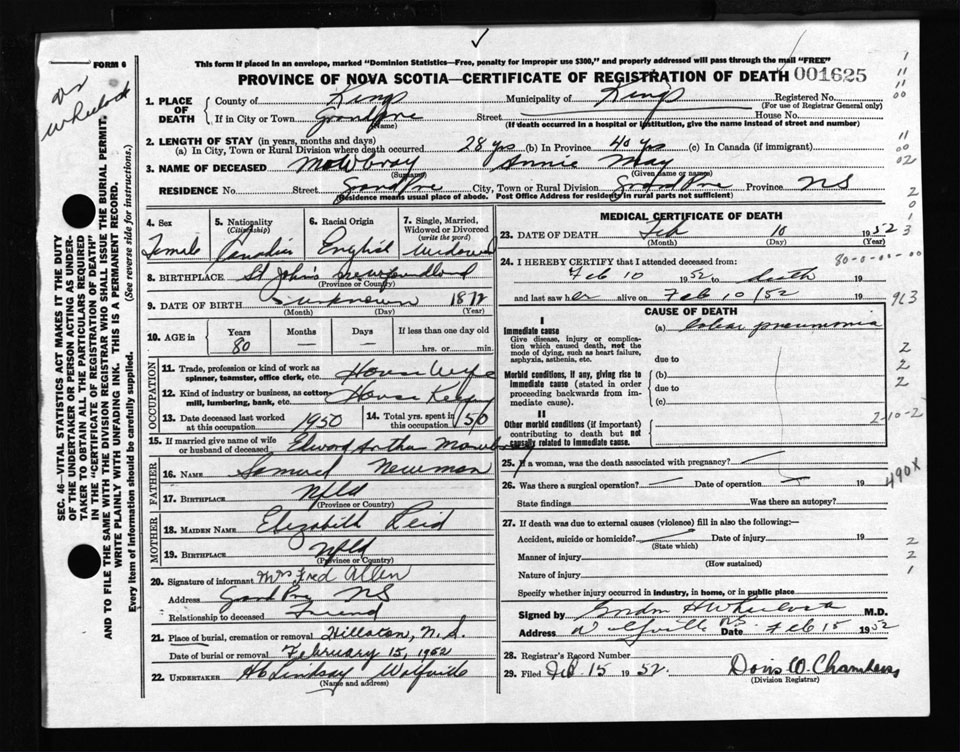 FORM 6
This form if placed in an envelope, marked "Dominion Statistics—Free, penalty for improper use $300," and properly addressed will pass through the mail "FREE"
PROVINCE OF NOVA SCOTIA—CERTIFICATE OF REGISTRATION OF DEATH 001625
Dr Wheelock
1. PLACE OF DEATH
County of Kings Municipality of Kings Registered No.
(For use of Registrar General only)
If in City or Town Grand Pre Street House No.
(Name) (If death occurred in a hospital or institution, give the name instead of street and number)
2. LENGTH OF STAY (in years, months and days)
(a) In City, Town or Rural Division where death occurred 28 yrs (b) In Province 40 yrs (c) In Canada (if immigrant)
3. NAME OF DECEASED Mowbray Annie May
(Surname) (Given name or names)
RESIDENCE No. Street Grand Pre City, Town or Rural Division Grand Pre Province NS
(Residence means usual place of abode. Post Office Address for residents in rural parts not sufficient)
4. Sex
Female
5. Nationality (Citizenship)
Canadian
6. Racial Origin
English
7. Single, Married, Widowed or Divorced (write the word)
Widowed
8. BIRTHPLACE St John's Newfoundland
(Province or Country)
9. DATE OF BIRTH unknown 18
(Month) (Day) (Year)
10. AGE in
Years Months Days If less than one day old
80 — — hrs. or min.
OCCUPATION
11. Trade, profession or kind of work as spinner, teamster, office clerk, etc. House Wife
12. Kind of industry or business, as cotton-mill, lumbering, bank, etc. House Keeping
13. Date deceased last worked at this occupation 1950
14. Total yrs. spent in this occupation 50
15. If married give name of wife or husband of deceased Edward Arthur Mowbray
FATHER
16. NAME Samuel Newman
17. BIRTHPLACE Nfld
(Province or Country)
MOTHER
18. MAIDEN NAME Elizabeth Reid
19. BIRTHPLACE Nfld
(Province or Country)
20. Signature of informant Mrs Fred Allen
Address Grand Pre NS
Relationship to deceased Friend
21. Place of burial, cremation or removal Hillaton, N.S.
Date of burial or removal February 15, 1952
22. UNDERTAKER Lindsay Wolfville
(Name and address)
MEDICAL CERTIFICATE OF DEATH
23. DATE OF DEATH Feb 10 1952
(Month) (Day) (Year)
24. I HEREBY CERTIFY that I attended deceased from: 80-0-00-00
Feb 10 1952 to death 19
and last saw her alive on Feb 10/52 19
CAUSE OF DEATH
I
Immediate cause
Give disease, injury or complication which caused death, not the mode of dying, such as heart failure, asphyxia, asthenia, etc.
(a) Lobar pneumonia
due to
Morbid conditions, if any, giving rise to immediate cause (stated in order proceeding backwards from immediate cause).
(b)
due to
(c)
II
Other morbid conditions (if important) contributing to death but not causally related to immediate cause.
2-10-2
490X
25. If a woman, was the death associated with pregnancy?
26. Was there a surgical operation? — Date of operation 19
State findings Was there an autopsy?
27. If death was due to external causes (violence) fill in also the following:
Accident, suicide or homicide? Date of injury 19
(State which)
Manner of injury
(How sustained)
Nature of injury
Specify whether injury occurred in industry, in home, or in public place
Signed by Gordon Wheelock M.D.
Address Wolfville NS Date Feb 15 1952
28. Registrar's Record Number
29. Filed Feb. 15 1952. Doris W. Chambers
(Division Registrar)
SEC. 46—VITAL STATISTICS ACT MAKES IT THE DUTY
OF THE UNDERTAKER OR PERSON ACTING AS UNDER-
TAKER TO OBTAIN ALL THE PARTICULARS REQUIRED
IN THE "CERTIFICATE OF REGISTRATION OF DEATH"
AND TO FILE THE SAME WITH THE DIVISION REGISTRAR WHO SHALL ISSUE THE BURIAL PERMIT.
WRITE PLAINLY WITH UNFADING INK. THIS IS A PERMANENT RECORD.
Every item of information should be carefully supplied. (See reverse side for instructions.)